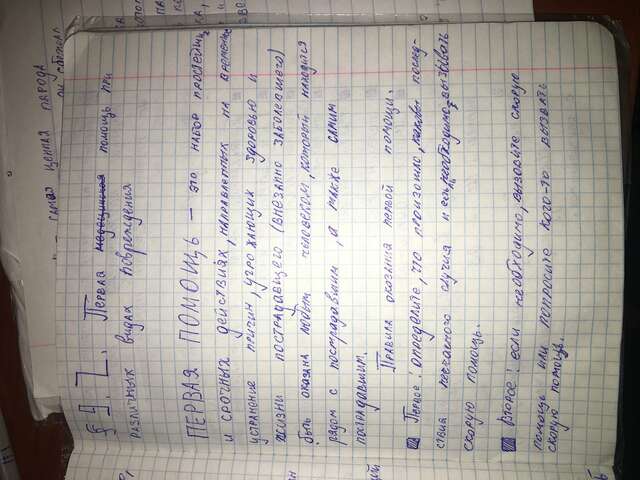 § 4.2. Первая медецинская помощь при
различных видах повреждения
ПЕРВАЯ ПОМОЩЬ — это набор простейших
и срочных действиях, направлентных на временное
устранение причин, угрожающих здоровью и
жизни пострадавшего (внезапно заболевшего)
быть оказана любым человеком, который находится
рядом с пострадавшим, а также самим
пострадавшим.
Правила оказания первой помощи.
Первое: определите, что произошло, каковы послед-
ствия несчастного случая и если необходимо, вызывать
скорую помощь.
Второе: если необходимо, вызовите скорую
помощь или попросите кого-то вызвать
скорую помощь.
самая ценная порода